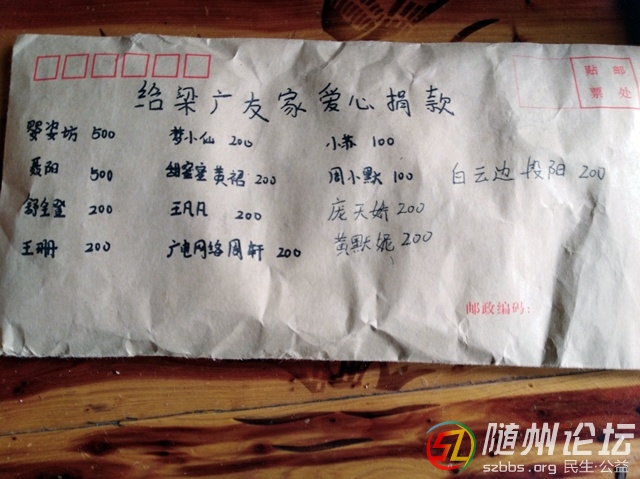 贴 邮
票 处
给梁广友家爱心捐款
婴姿坊 500 梦小仙 200 小苏 100
聂阳 500 甜蜜蜜黄裙 200 周小默 100 白云边 段阳 200
200 王凡凡 200 庞天娇 200
王珊 200 广电网络周轩 200 黄默妮 200
邮政编码:
随州论坛
szbbs.org 民生·公益